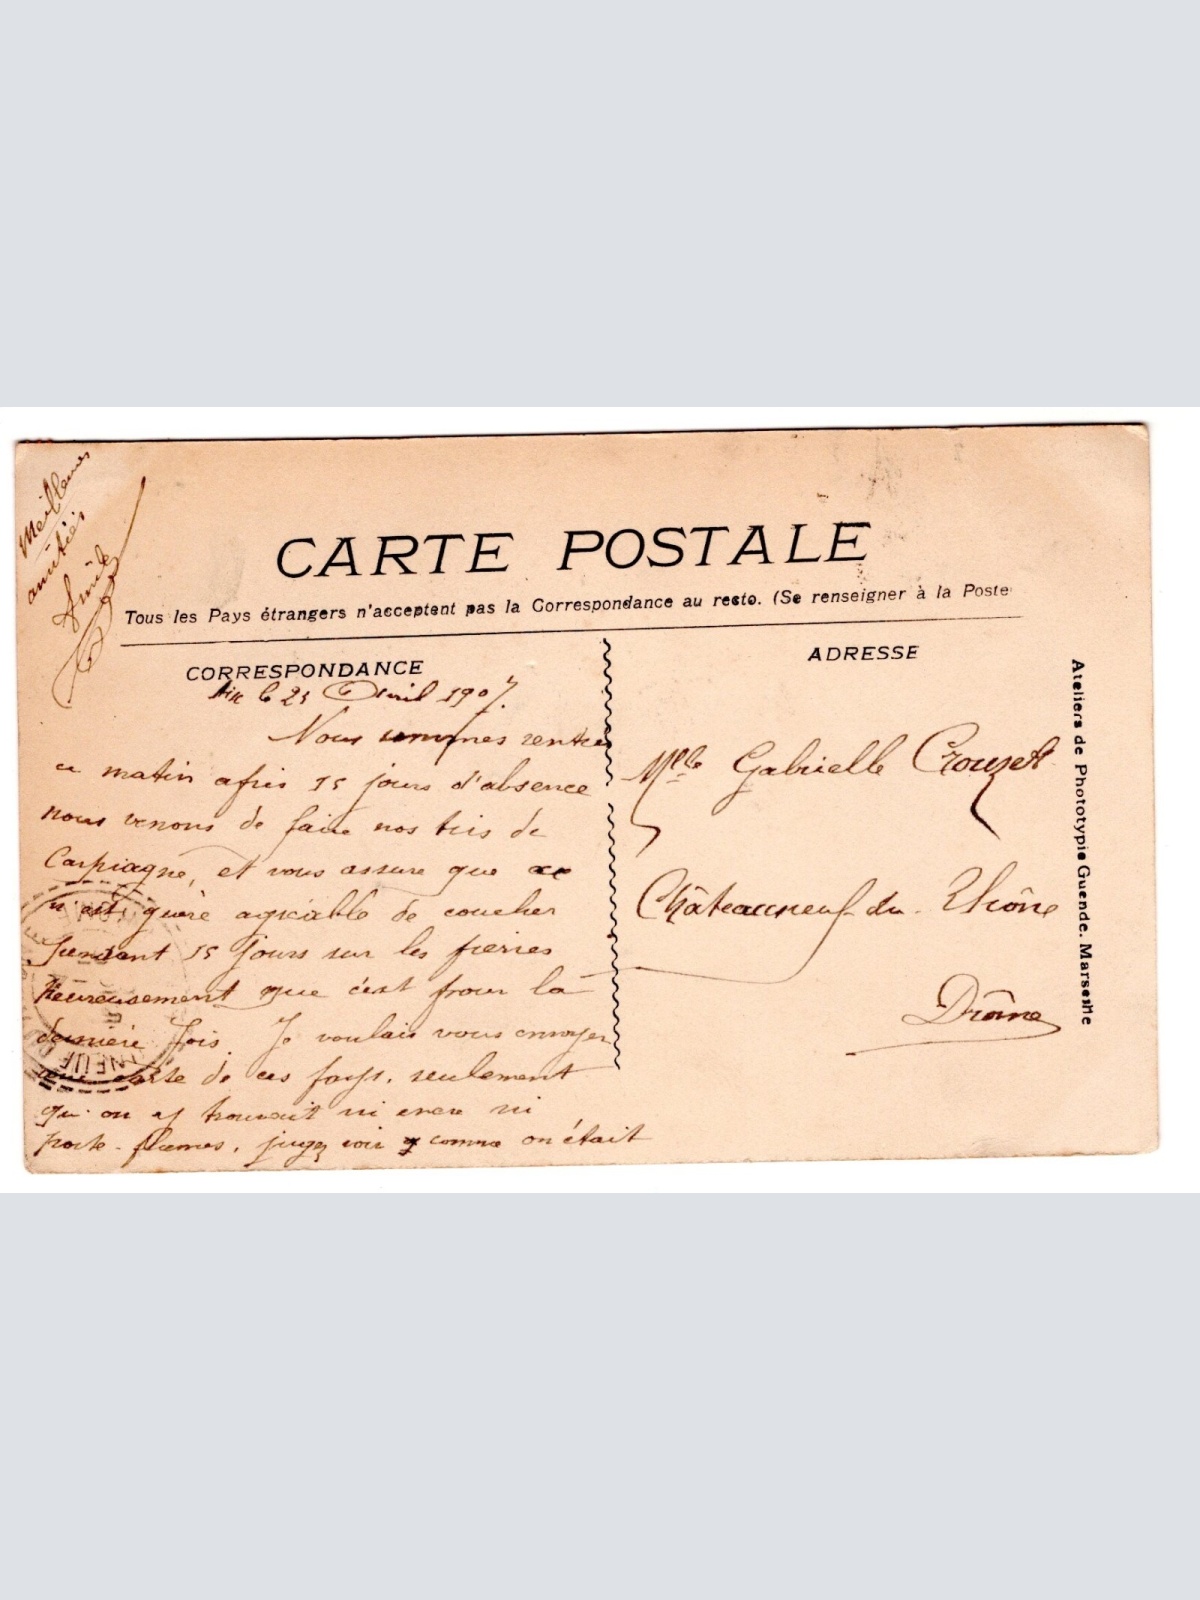 Meilleures
amitiés
CARTE POSTALE
Tous les Pays étrangers n'acceptent pas la Correspondance au recto. (Se renseigner à la Poste
CORRESPONDANCE
Aix le 25 Avril 1907.
Nous sommes rentrés
ce matin après 15 jours d'absence
nous venons de faire nos tirs de
Carpiagne, et vous assure que ce
n'est guère agréable de coucher
pendant 15 jours sur les pierres
heureusement que c'est pour la
dernière fois. Je voulais vous envoyer
une carte de ces pays, seulement
qu'on y trouvait ni encre ni
porte-plumes, jugez voir comme on était
ADRESSE
Mlle Gabrielle Crouzet
Châteauneuf-du-Rhône
Drôme
Ateliers de Phototypie Guende. Marseille